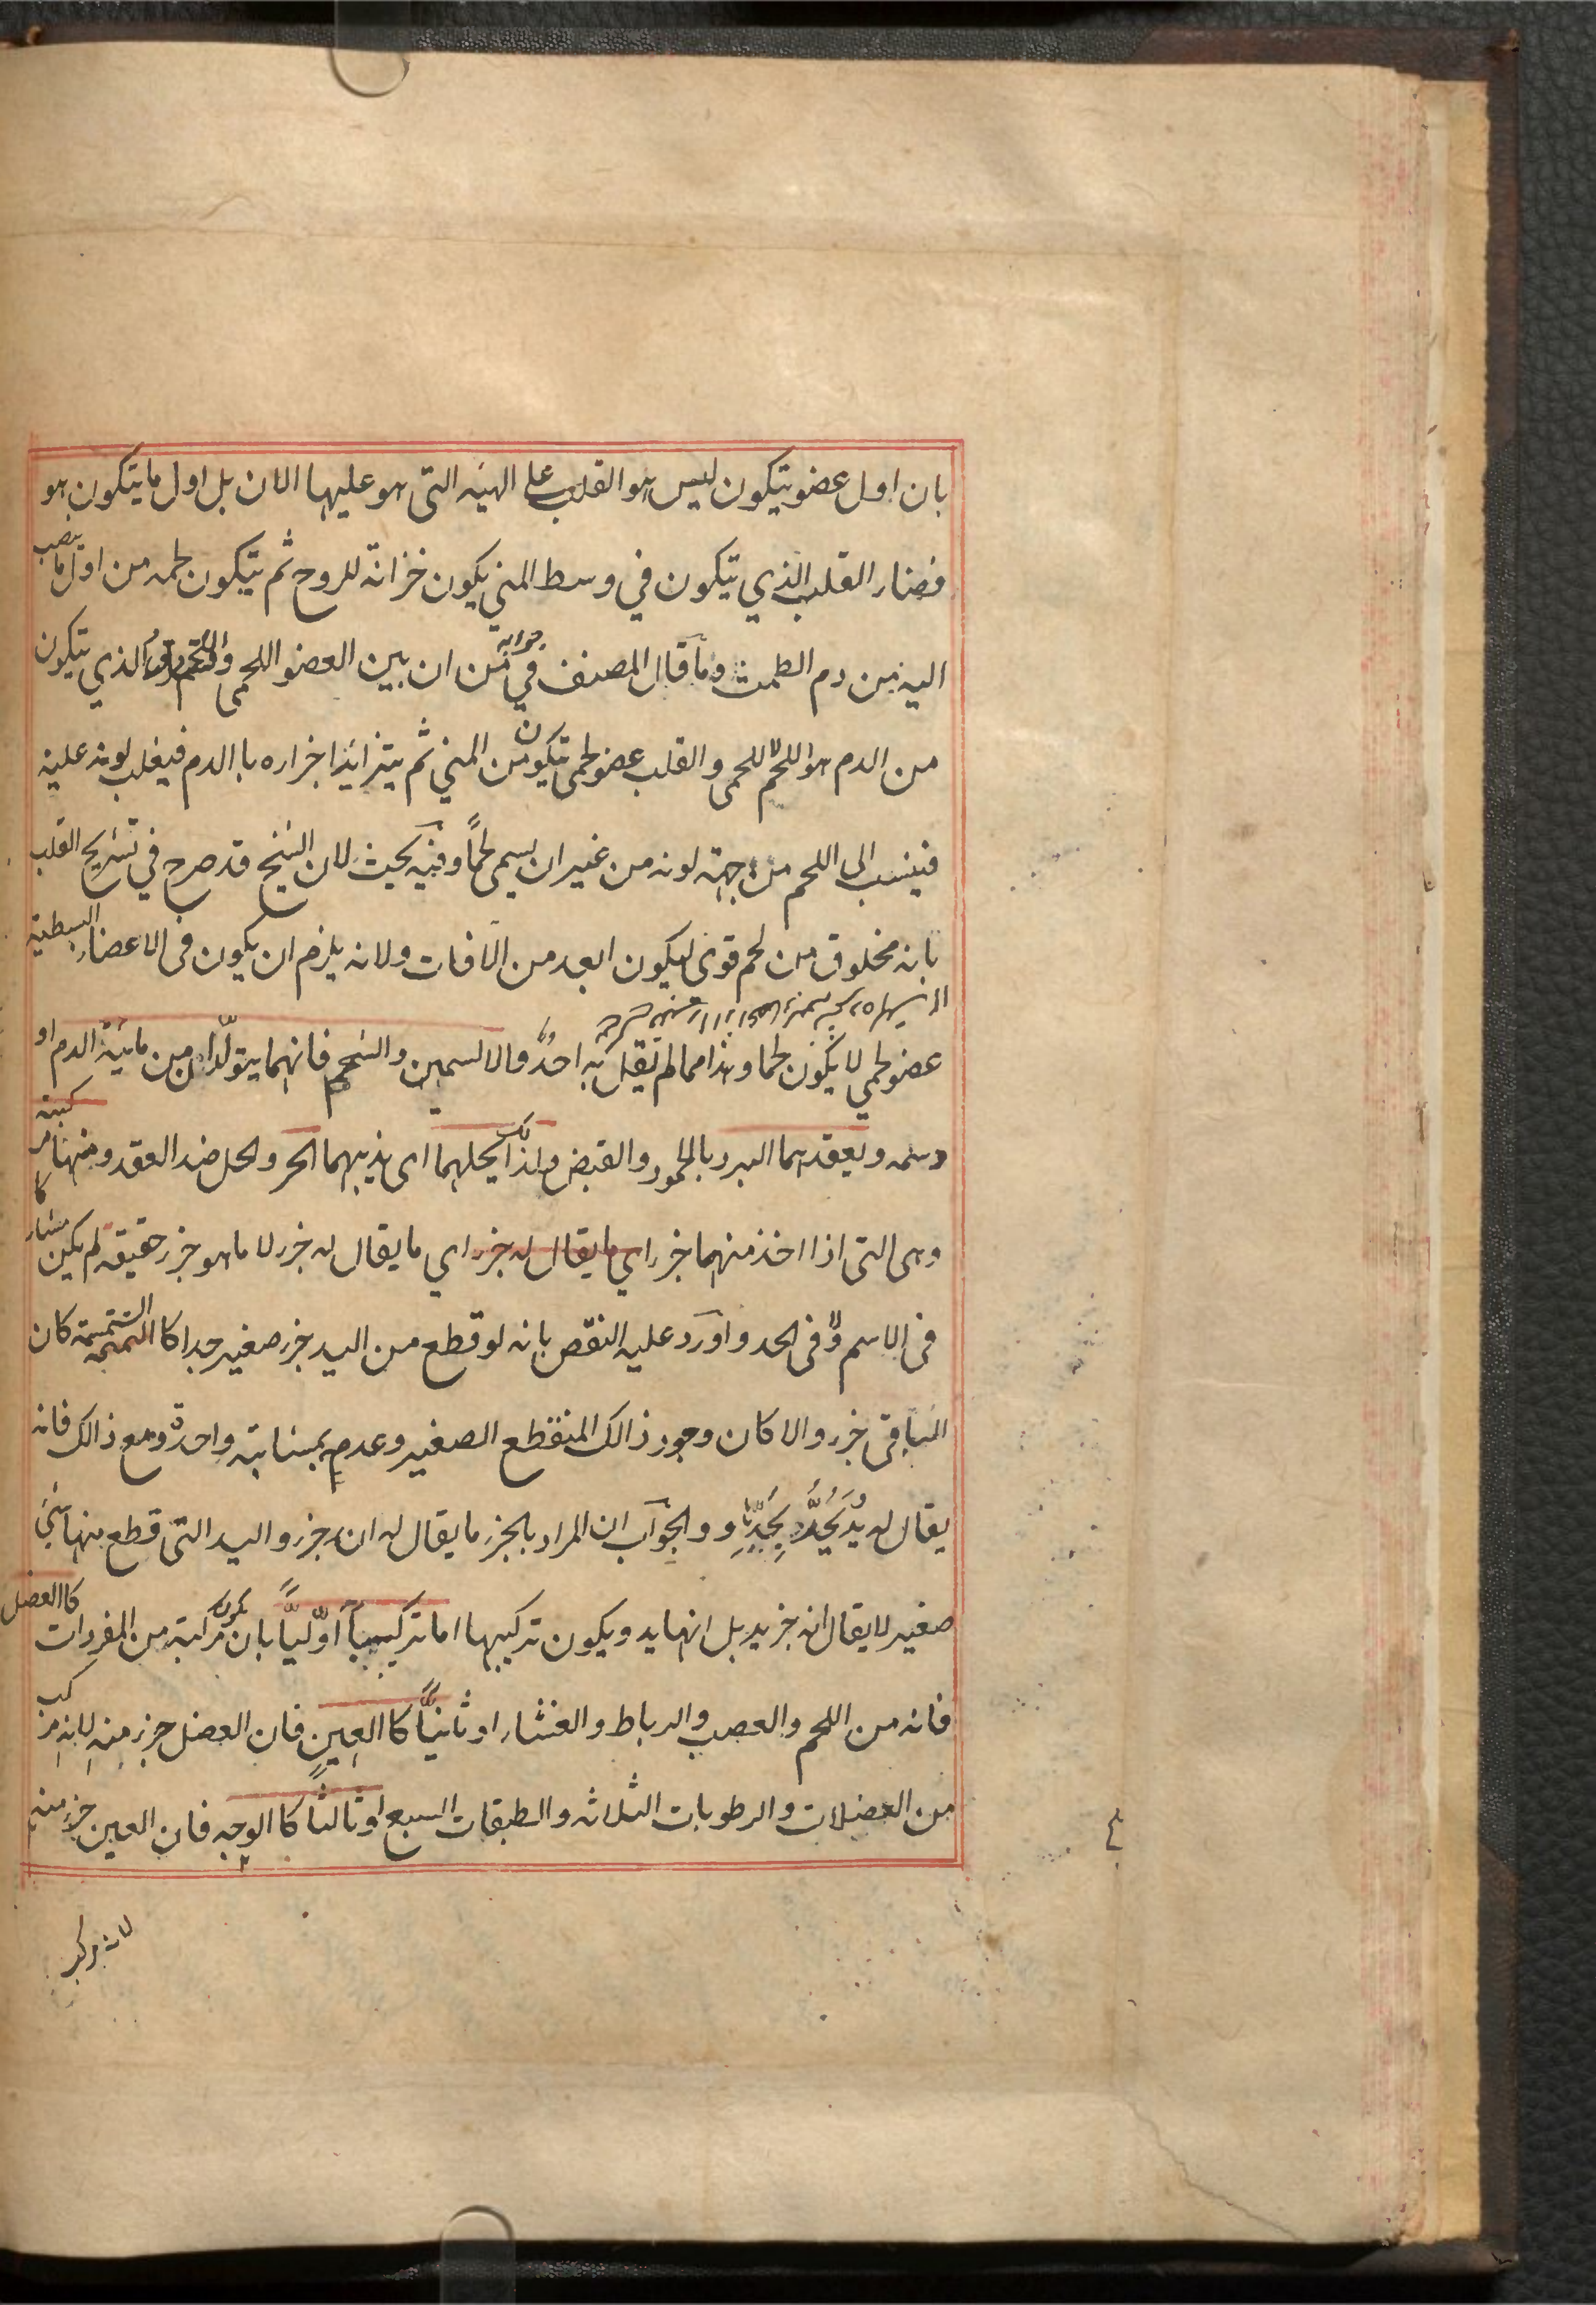 بان اول عضو يتكون ليس هو القلب على الهيئه التى هو عليها الان بل اول ما يتكون هو
فضار القلب الذي يتكون في وسط المني يكون خزانة للروح ثم يتكون لحمه من اول ما ينصب
اليه من دم الطمث وما قال المصنف في جوابه من ان بين العضو اللحمى واللحم فرق الذي يتكون
من الدم هو اللحم لا اللحمى والقلب عضو لحمى يتكون من المني ثم يتزايد اجزاره با الدم فيغلب لونه عليه
فينسب الى اللحم من جهة لونه من غير ان يسمى لحماً وفيه بحيث لان الشيخ قد صرح في تشريح القلب
بانه مخلوق من لحم قوى ليكون ابعد من الافات ولانه يلزم ان يكون فى الاعضاء البسطية
عضو لحمي لا يكون لحما وهذا مما لم يقل به احد والا السمين والشحم فانهما يتولّدان من مائية الدم او
دسمه ويعقدهما البرد بالجمود والقبض ولذالك يحلهما اى يذيبهما الحر والحل ضد العقد ومنها مركبته
وهى التى اذا اخذ منهما جزر اي ما يقال له جزر اي ما يقال له جزر لا ما هو جزر حقيقه لم يكن مشاركا
فى الاسم ولا فى الحد واورد عليه النقض بانه لو قطع من اليد جزر صغير جدا كا السمسمة كان
الباقى جزر والا كان وجود ذالك المنقطع الصغير وعدم بمثابته واحدة ومع ذالك فانه
يقال له يد ويحد بحدها والجواب ان المراد بالجزر ما يقال له انه جزر واليد التى قطع منها شئ
صغير لا يقال انه جزر يد بل انها يد ويكون تركيبها اما تركيباً اوّلياً بان يكون مركبة من المفردات كا العضل
فانه من اللحم والعصب والرباط والغشار او ثانياً كا العين فان العضل جزر منه لانه مركب
من العضلات والرطوبات الثلاثه والطبقات السبع او ثالثاً كا الوجه فان العين جزر منه